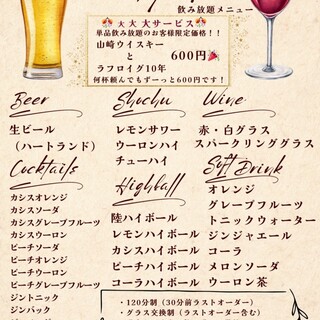 飲み放題メニュー
大大大サービス
単品飲み放題のお客様限定価格！！
山崎ウイスキー
と
ラフロイグ10年
600円
何杯頼んでもずーっと600円です！
Beer
生ビール
（ハートランド）
Shochu
レモンサワー
ウーロンハイ
チューハイ
Wine
赤・白グラス
スパークリンググラス
Cocktails
カシスオレンジ
カシスソーダ
カシスグレープフルーツ
カシスウーロン
ピーチソーダ
ピーチオレンジ
ピーチウーロン
ピーチグレープフルーツ
ジントニック
ジンバック
Highball
陸ハイボール
レモンハイボール
カシスハイボール
ピーチハイボール
コーラハイボール
Soft Drink
オレンジ
グレープフルーツ
トニックウォーター
ジンジャエール
コーラ
メロンソーダ
ウーロン茶
・120分制（30分前ラストオーダー）
・グラス交換制（ラストオーダー含む）